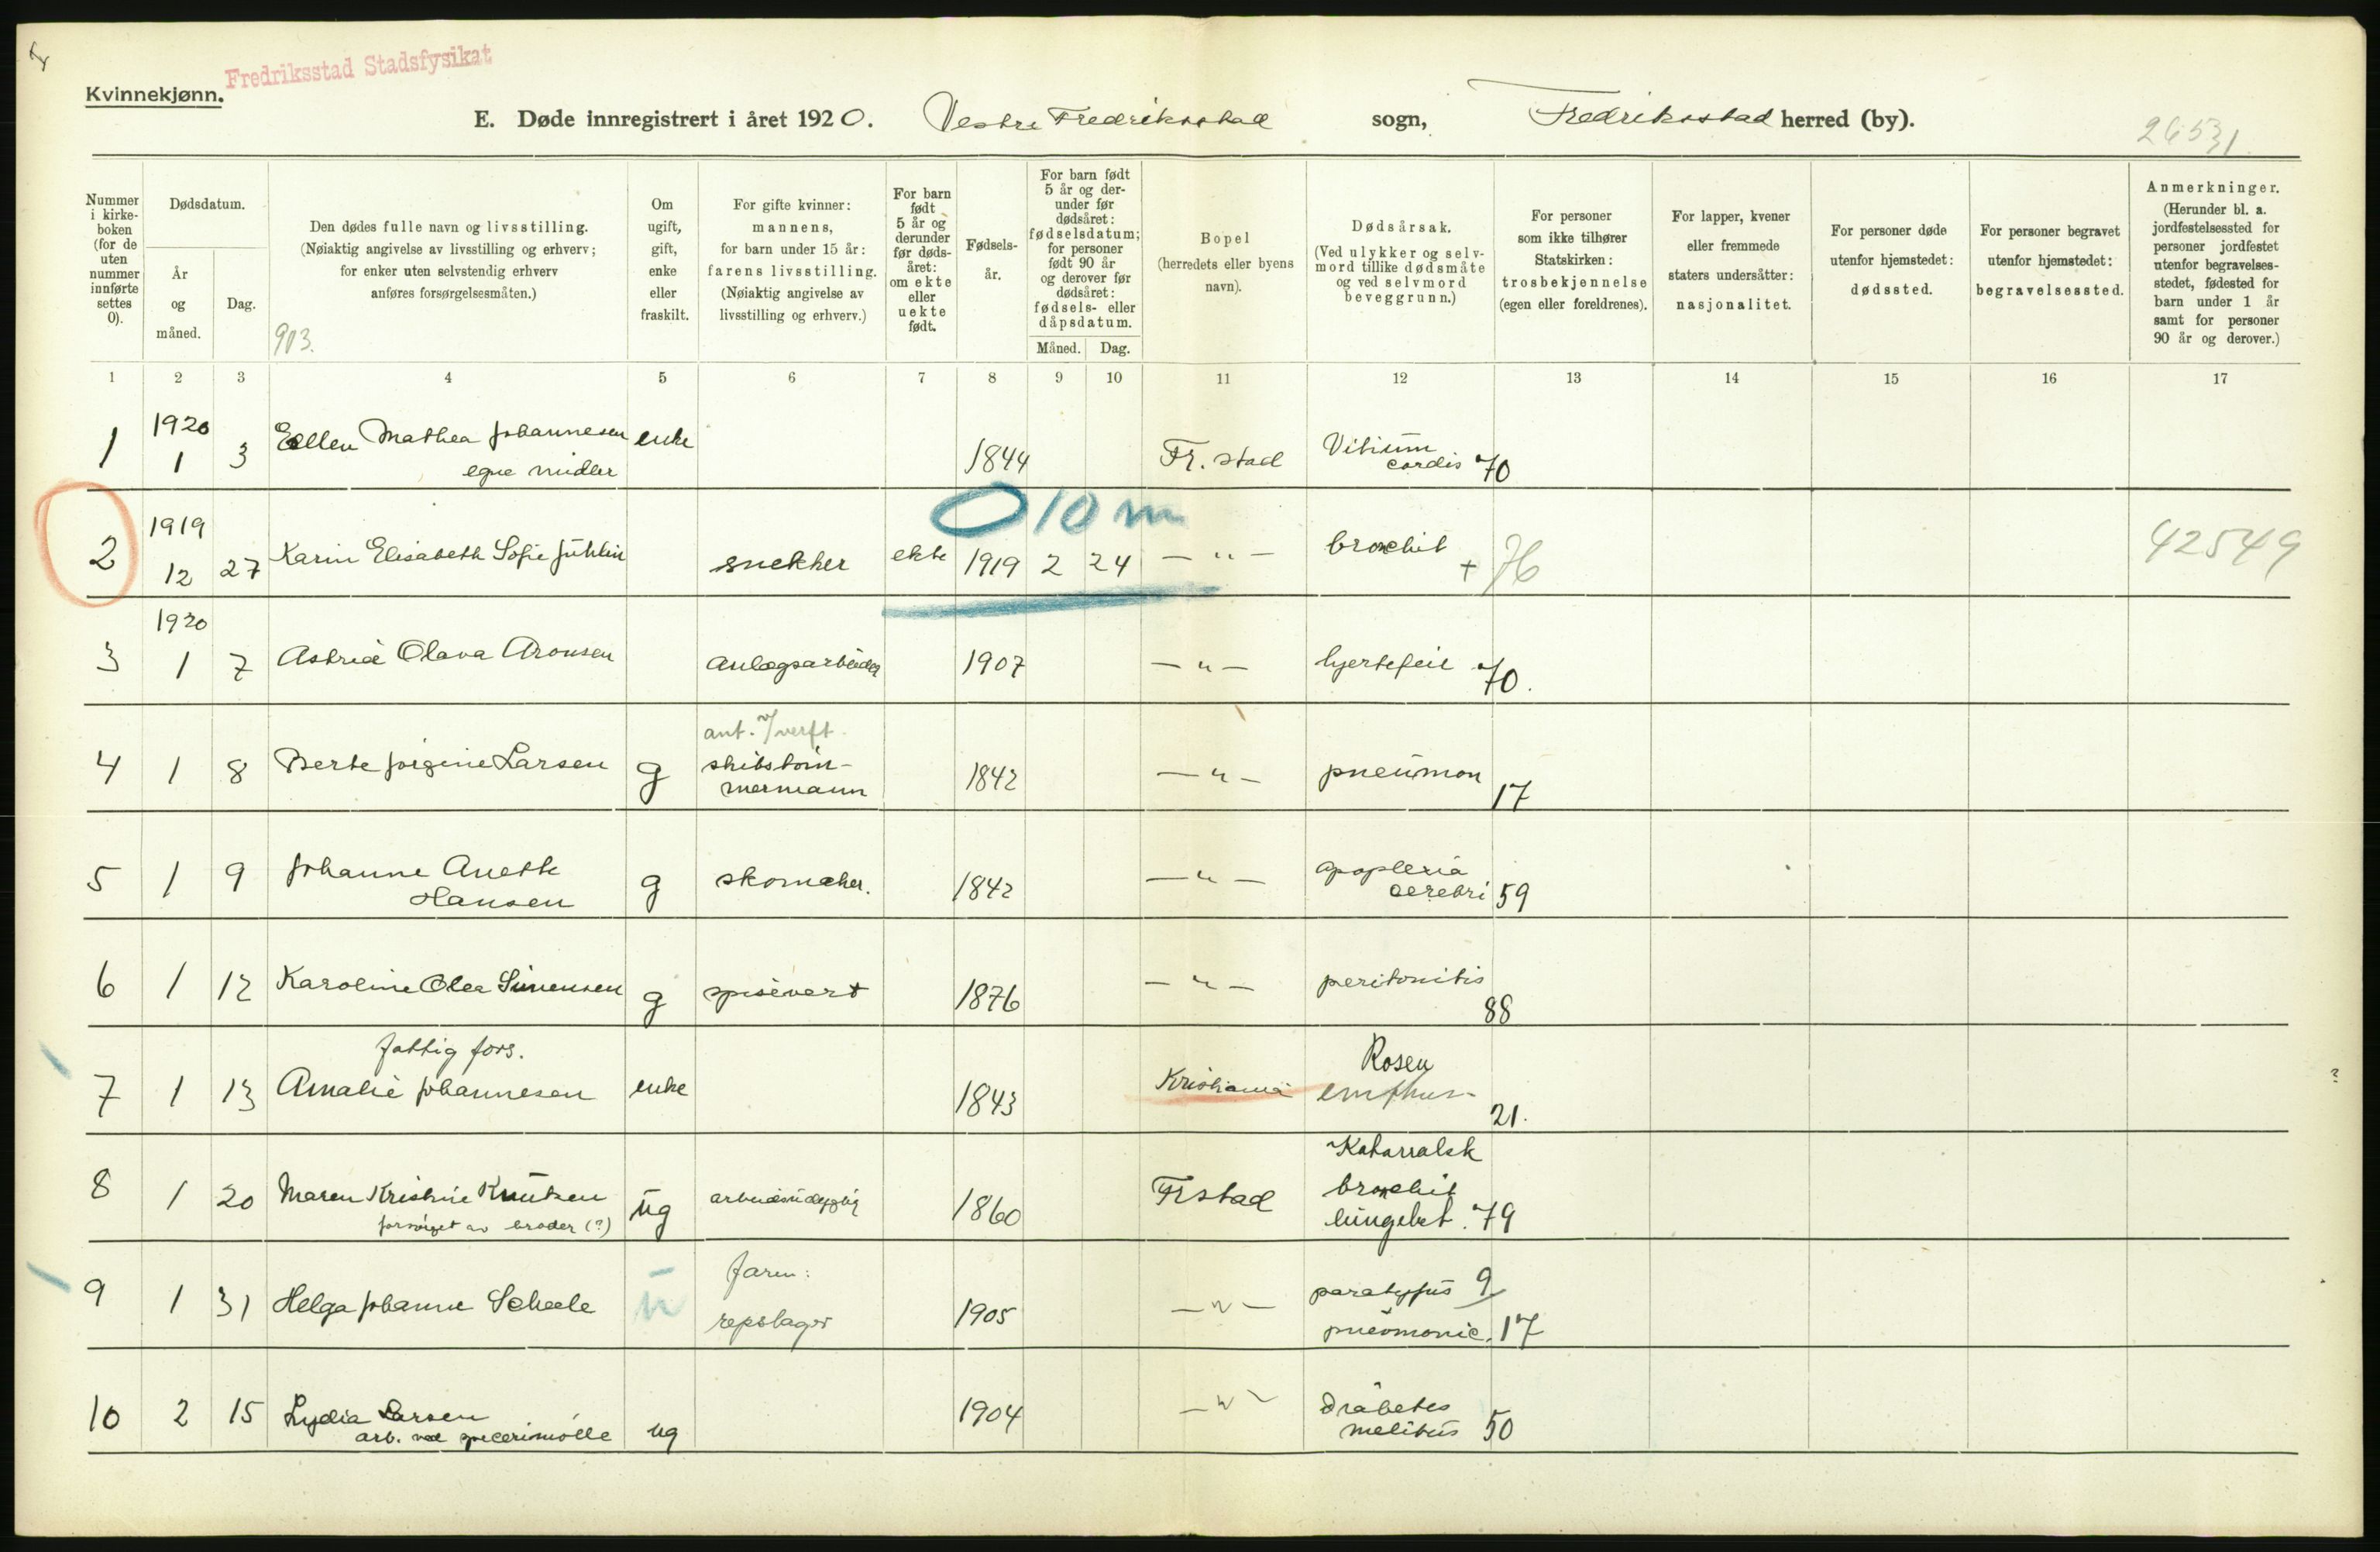 Fredriksstad Stadsfysikat
Kvinnekjønn.
E. Døde innregistrert i året 1920. Vestre Fredriksstad sogn, Fredriksstad herred (by).
26531.
Nummer i kirke- boken (for de uten nummer innførte settes 0).
Dødsdatum.
År og måned.
Dag.
Den dødes fulle navn og livsstilling.
(Nøiaktig angivelse av livsstilling og erhverv;
for enker uten selvstendig erhverv
anføres forsørgelsesmåten.)
903.
Om ugift, gift, enke eller fraskilt.
For gifte kvinner:
mannens,
for barn under 15 år:
farens livsstilling.
(Nøiaktig angivelse av
livsstilling og erhverv.)
For barn født 5 år og derunder før døds- året: om ekte eller uekte født.
Fødsels- år.
For barn født 5 år og der- under før dødsåret: fødselsdatum; for personer født 90 år og derover før dødsåret: fødsels- eller dåpsdatum.
Måned. Dag.
Bopel
(herredets eller byens
navn).
Dødsårsak.
(Ved ulykker og selv-
mord tillike dødsmåte
og ved selvmord
beveggrunn.)
For personer
som ikke tilhører
Statskirken:
trosbekjennelse
(egen eller foreldrenes).
For lapper, kvener
eller fremmede
staters undersåtter:
nasjonalitet.
For personer døde
utenfor hjemstedet:
dødssted.
For personer begravet
utenfor hjemstedet:
begravelsessted.
Anmerkninger.
(Herunder bl. a.
jordfestelsessted for
personer jordfestet
utenfor begravelses-
stedet, fødested for
barn under 1 år
samt for personer
90 år og derover.)
1 2 3 4 5 6 7 8 9 10 11 12 13 14 15 16 17
1 1920 1 3 Ellen Mathea Johannesen enke 1844 Fr.stad Vitium cordis 70
egne midler
O 10 m
2 1919 12 27 Karin Elisabeth Sofie Juhlin snekker ekte 1919 2 24 — " — bronchit + 76 42549
3 1920 1 7 Astrid Olava Aronsen anlægsarbeider 1907 — " — hjertefeil 70.
4 1 8 Berte Jørgine Larsen g ant. v/verft skibstøm- mermann 1842 — " — pneumon 17
5 1 9 Johanne Aneth Hansen g skomaker. 1842 — " — apoplexia cerebri 59
6 1 12 Karoline Olea Simensen g spisevert 1876 — " — peritonitis 88
fattig fors.
7 1 13 Amalie Johannesen enke 1843 Kristiania Rosen 21.
8 1 20 Maren Kristine Knutsen ug arbeidsudygtig 1860 Frstad Katarralsk bronchit lungebet. 79
forsørget av broder (?)
9 1 31 Helga Johanne Scheele u faren: repslager 1905 — " — paratyfus 9 pneumonie. 17
10 2 15 Lydia Larsen ug 1904 — " — Diabetes melitus 50
arb. ved specerimølle
?